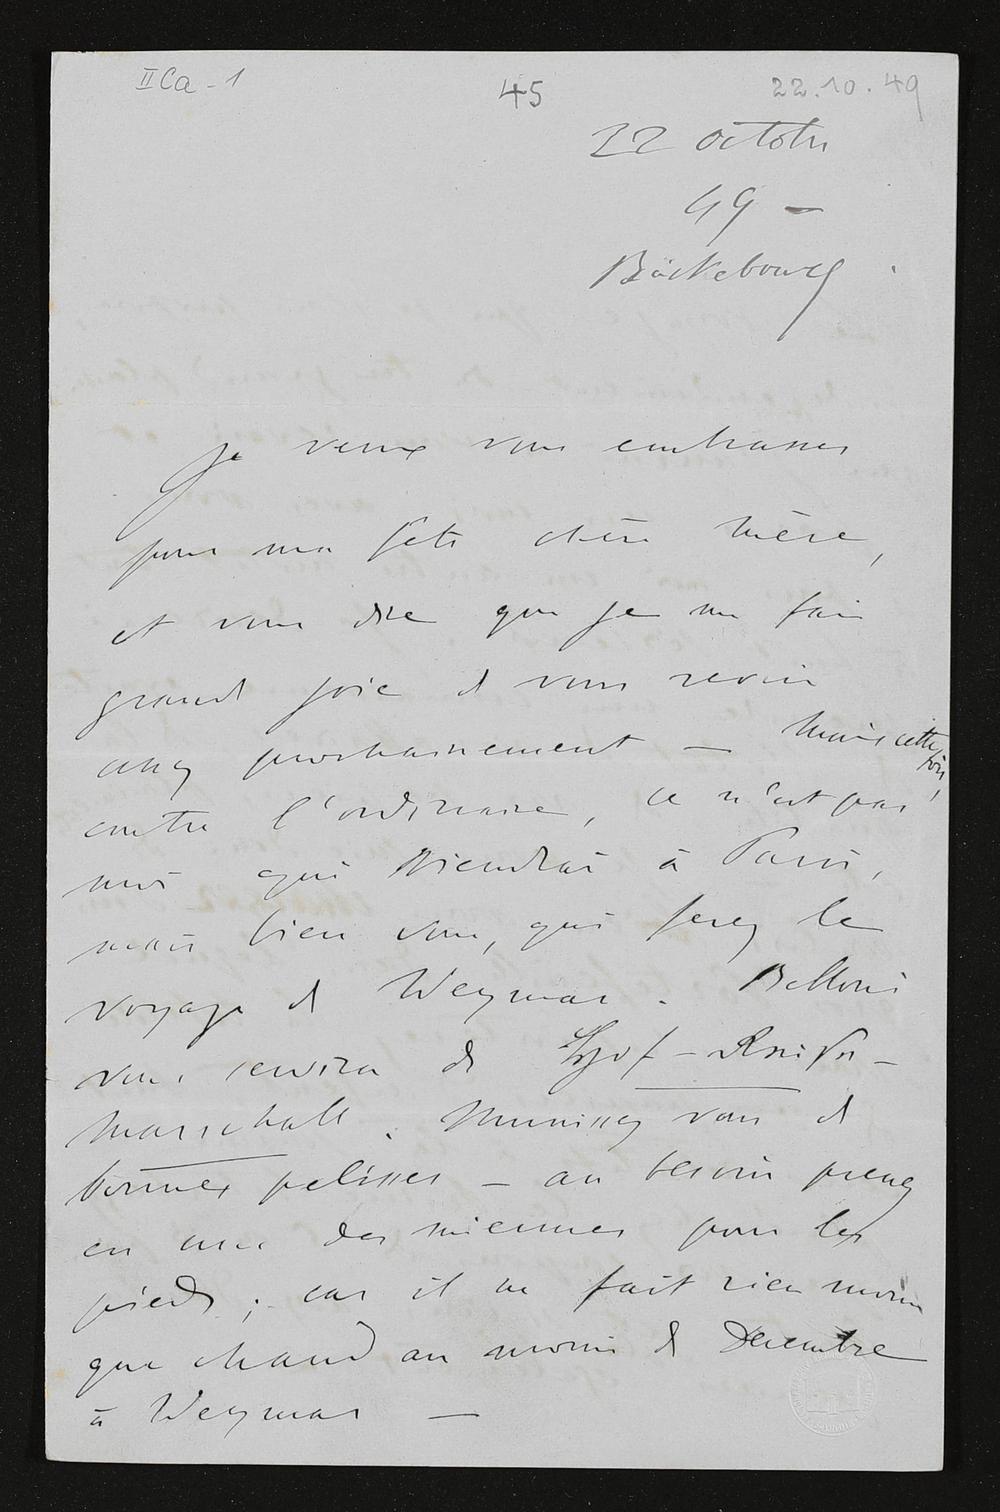 IICa-1
45
22.10.49
22 octobre
49 —
Bückebourg
Je veux vous embrasser
pour ma fête chère Mère,
et vous dire que je me fais
grande joie de vous revoir
assez prochainement — Mais cette fois,
contre l'ordinaire, ce n'est pas
moi qui viendrai à Paris,
mais bien vous, qui ferez le
voyage de Weymar. Belloni
vous servira de Hof-Reise-
Marschall. Munissez vous de
bonnes pelisses — au besoin prenez
en une des miennes pour les
pieds; car il ne fait rien moins
que chaud au mois de Decembre
à Weymar —